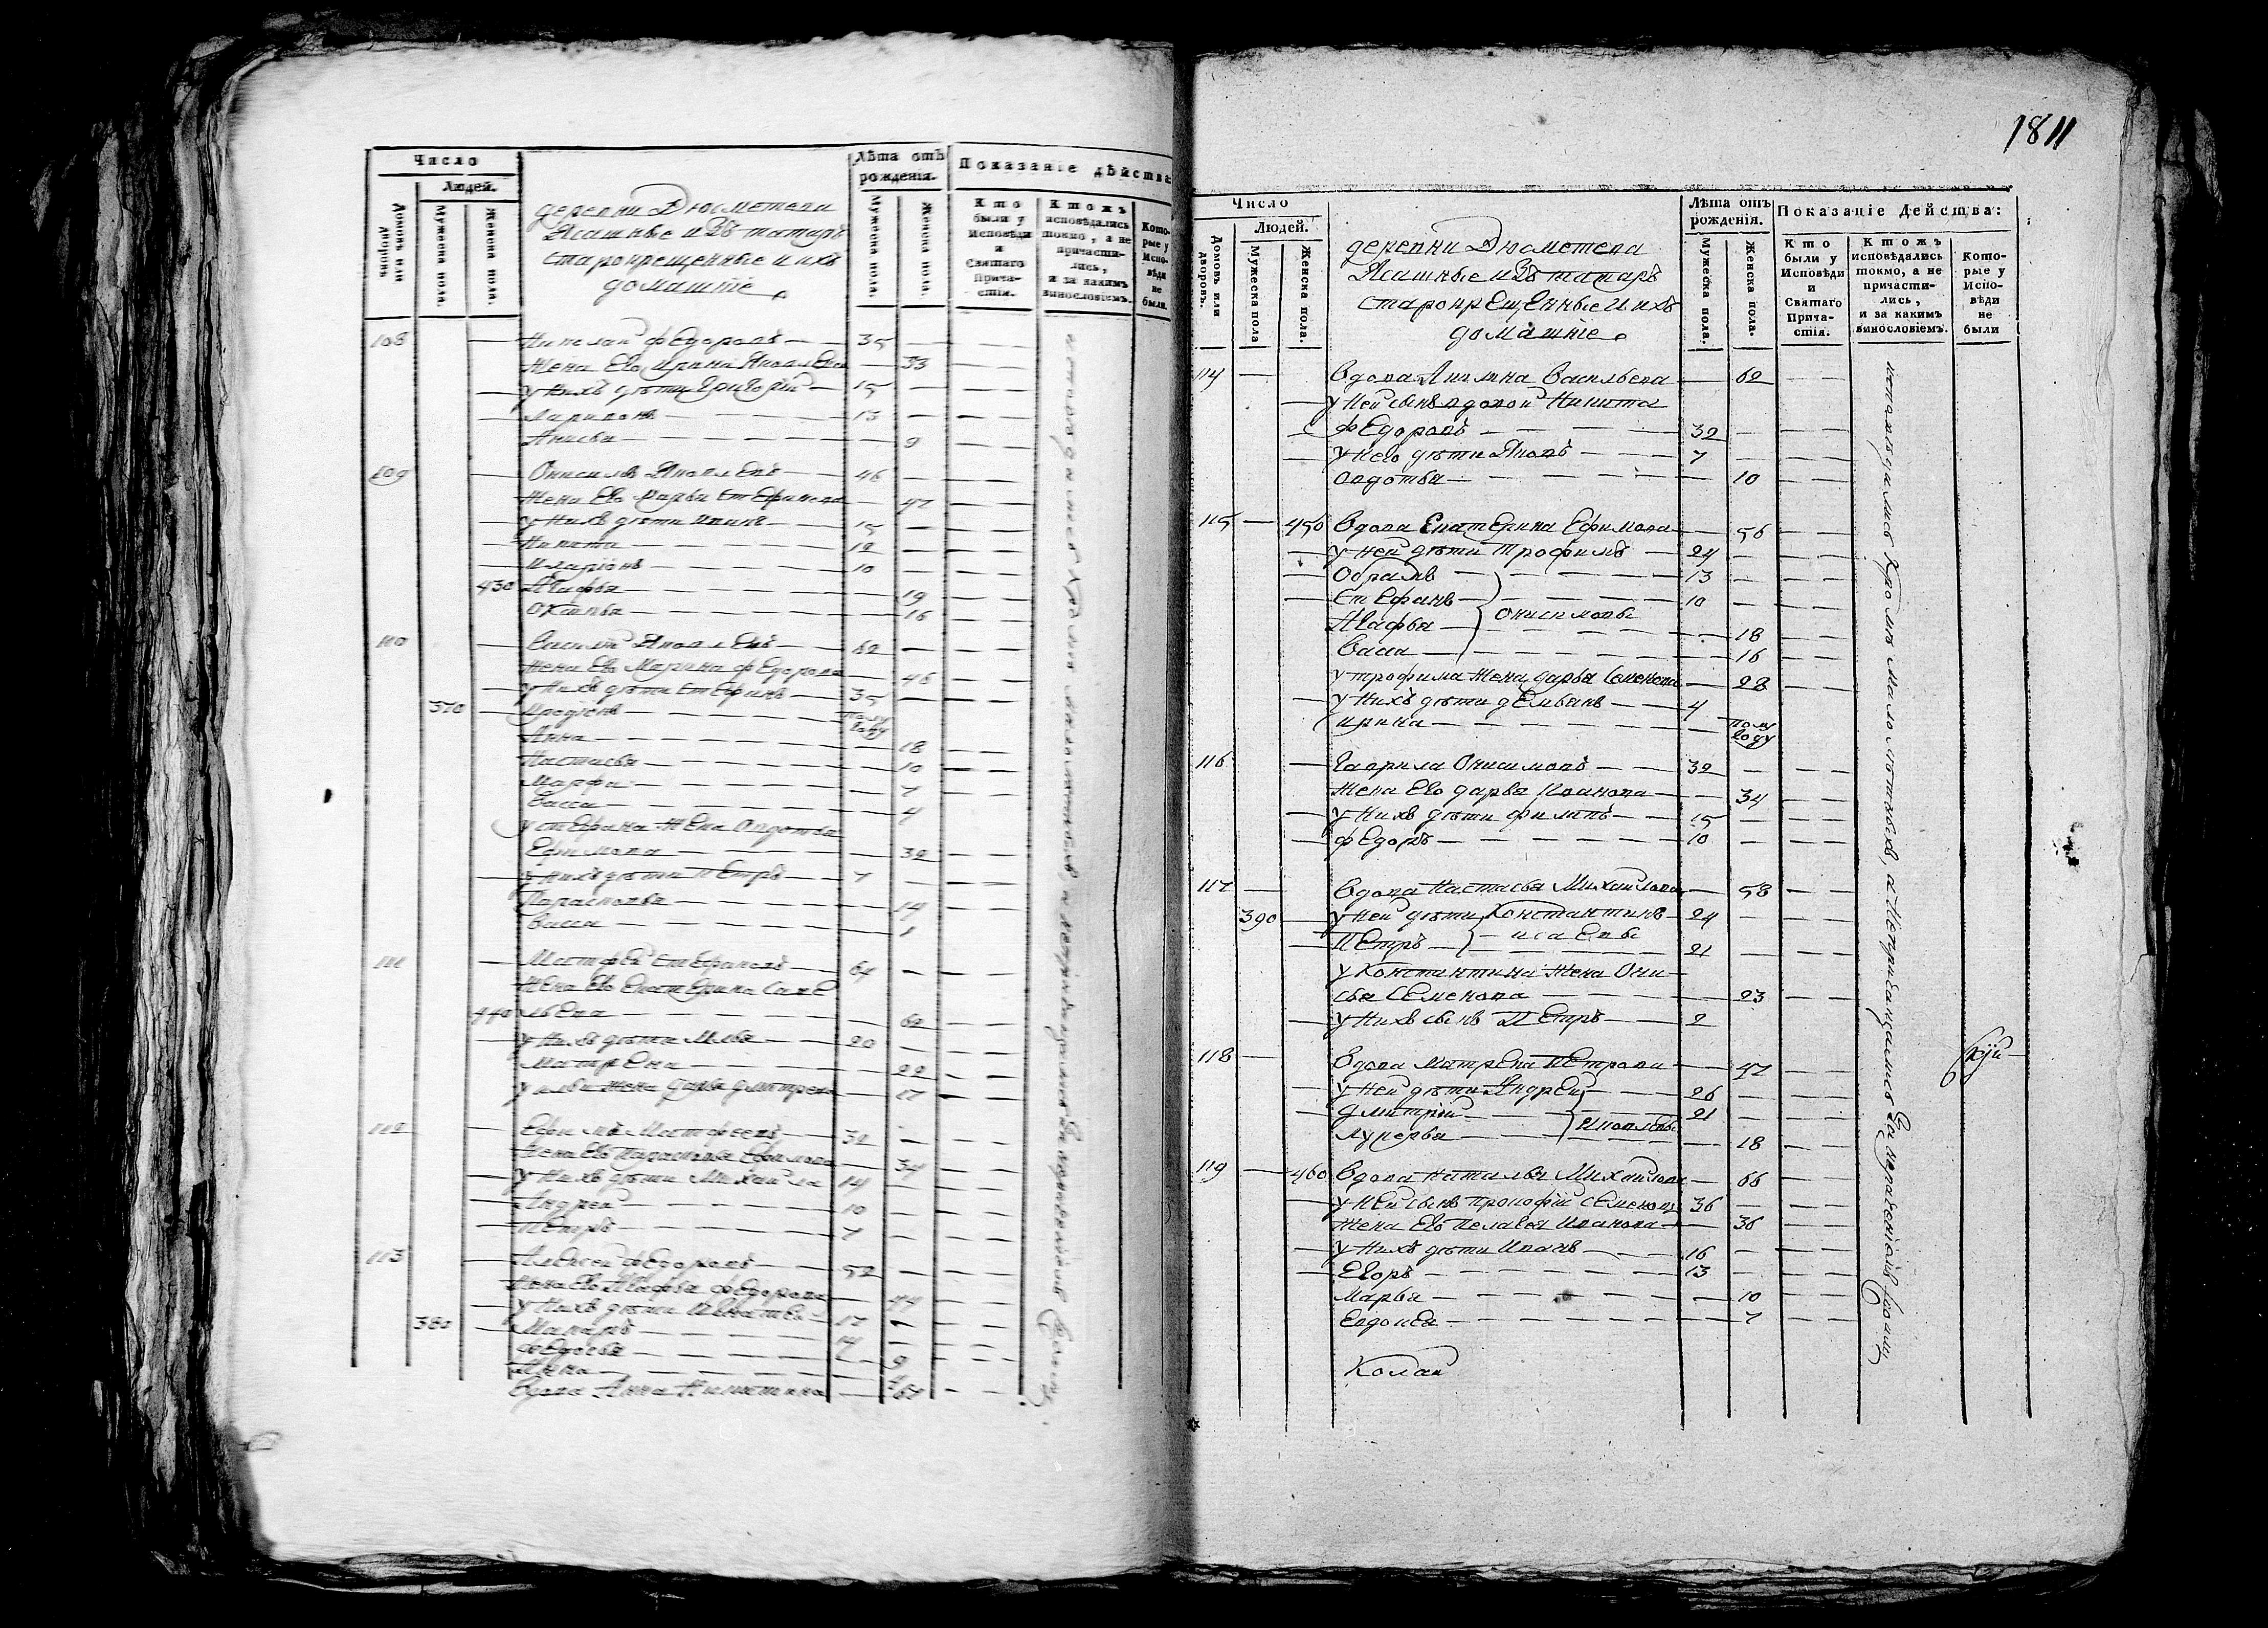 Число
Людей.
Домовъ или дворовъ.
Мужеска пола.
Женска пола.
деревни Дюсметева
Ясашные изъ татаръ
старокрещенные и ихъ
домашніе
Лѣта отъ рожденія.
Мужеска пола.
Женска пола.
Показаніе дѣйства
Кто были у Исповѣди и Святаго Прича-стія.
Ктожъ исповѣдались токмо, а не причасти-лись, и за какимъ винословіемъ.
Кото-рые у Испо-вѣди не были.
108 — Николай Федоровъ — 35
Жена Его Ирина Яковлева — 33
у Нихъ дѣти Григорій — 15
Ларивонъ — 13
Анисья — 9
109 — Онисимъ Яковлевъ — 46
Жена Его Марья Стефанова — 47
у Нихъ дѣти Иванъ — 15
Никита — 12
Иларіонъ — 10
430 Агафья — 19
— 16
110 — Василій Яковлевъ — 62
Жена Его Марина Федорова — 46
у Нихъ дѣти Стефанъ — 35
370 — Иродіонъ — полу году
Анна — 18
Настасья — 10
Марфа — 7
Васса — 4
у Стефана Жена Овдотья
Ефимова — 32
у Нихъ дѣти Петръ — 7
Парасковья — 14
Васса — 1
111 — Матфей Стефановъ — 64
Жена Его Екатерина СавE
440 льева — 62
у Нихъ дѣти Илья — 20
Матрена — 22
у Ильи Жена Дарья Дмитрева — 17
112 — Ефимъ Матфеевъ — 32
Жена Его Парасковья Ефимова — 34
у Нихъ дѣти Михайла — 14
Андрей — 10
Петръ — 7
113 — Алексей Федоровъ — 52
Жена Его Агафья Федорова — 44
у Нихъ дѣти Игнатей — 17
380 — Макаръ — 14
Федосья — 9
Вдова Анна Никитина — 67
1811
Число
Людей.
Домовъ или дворовъ.
Мужеска пола
Женска пола.
деревни Дюсметева
Ясашные изъ татаръ
старокрещенные и ихъ
домашніе
Лѣта отъ рожденія.
Мужеска пола.
Женска пола.
Показаніе Действа:
Кто были у Исповѣди и Святаго Прича-стія.
Ктожъ исповѣдались токмо, а не причасти-лись, и за какимъ винословіемъ.
Кото-рые у Испо-вѣди не были
114 — Вдова Акилина Васильева — 62
у Ней сынъ вдовой Никита
Федоровъ — 32
у Него дѣти Яковъ — 7
Овдотья — 10
115 — 450 Вдова Екатерина Ефимова — 56
у Ней дѣти Трофимъ — 24
Обрамъ — 13
Стефанъ — 10
Онисимовы
Агафья — 18
Васса — 16
у Трофима Жена Дарья Семенова — 28
у Нихъ дѣти Демьянъ — 4
Ирина — полу году
116 — Гаврила Онисимовъ — 32
Жена Его Дарья Иванова — 34
у Нихъ дѣти Филипъ — 15
Федоръ — 10
117 — Вдова Настасья Михайлова — 58
390 — у Ней дѣти Константинъ — 24
Исаевы
Петръ — 21
у Константина Жена Оки-
сья Семенова — 23
у Нихъ сынъ Петръ — 2
118 — Вдова Матрена Петрова — 47
у Ней дѣти Андрей — 26
Дмитрій — 21
Яковлевы
Лукерья — 18
119 — 460 Вдова Наталья Михайлова — 66
у Ней сынъ Прокофій Семеновъ 36
Жена Его Пелагея Иванова — 36
у Нихъ дѣти Иванъ — 16
Егоръ — 13
Марья — 10
Евдокея — 7
исповѣдались Кромѣ малолѣтныхъ, а Непричащались За нераченіемъ своимъ